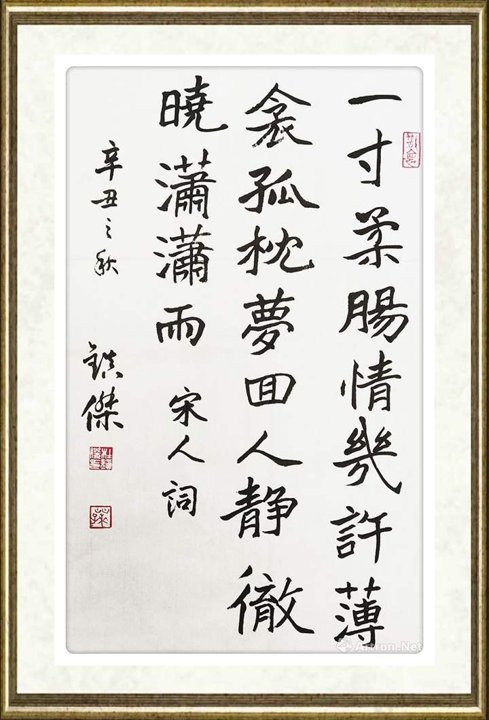 一寸柔腸情幾許薄
衾孤枕夢回人静徹
曉瀟瀟雨 宋人詞
辛丑之秋 鎮傑
Artron.Net